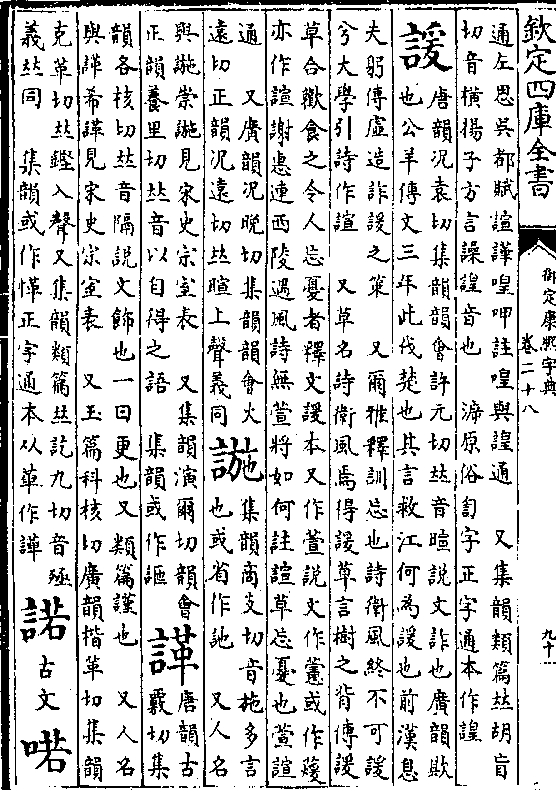 欽定四庫全書
御定康熙字典
卷二十八
九十
通左思吳都賦諠譁喤呷註喤與諻通　又集韻類篇𠀤胡盲
切音橫揚子方言諻音也　䜂原俗訇字正字通本作諻
諼唐韻況袁切集韻韻會許元切𠀤音暄說文詐也廣韻欺
也公羊傳文三年此伐楚也其言救江何為諼也前漢息
夫躬傳虛造詐諼之策　又爾雅釋訓忘也詩衛風終不可諼
兮大學引詩作諠　又草名詩衛風焉得諼草言樹之背傳諼
草合歡食之令人忘憂者釋文諼本又作萱說文作藼或作蕿
亦作諠謝惠連西陵遇風詩無萱將如何註諠草忘憂也萱諠
通　又廣韻況晚切集韻韻會火
遠切正韻況遠切𠀤暄上聲義同　䛄集韻商支切音施多言
也或省作訑　又人名
與䛄崇䛄見宋史宗室表　又集韻演爾切韻會
正韻養里切𠀤音以自得之語　集韻或作訑　諽唐韻古
覈切集
韻各核切𠀤音隔說文飾也一曰更也又類篇謹也　又人名
與諽希諽見宋史宗室表　又玉篇科核切廣韻楷革切集韻
克革切𠀤鏗入聲又集韻類篇𠀤訖力切音殛
義𠀤同　集韻或作愅正字通本从革作諽　諾古文㗉